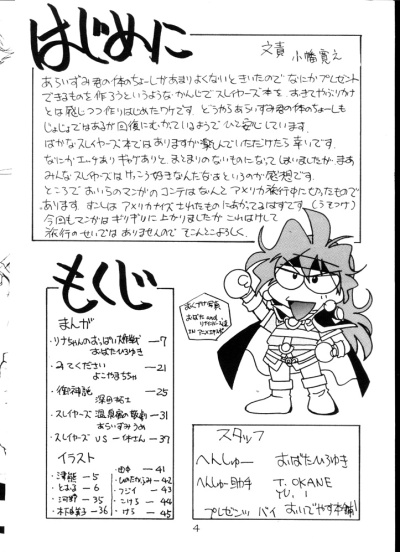 はじめに
文責 小幡寛之
あらいずみ君の体のちょーしがあまりよくないときいたので なにか プレゼント
できるものを作ろうというようなかんじでスレイヤーズ本を、
とは感じつつ作りはじめたワケです。どうやらあらいずみ君の体のちょーしも
じょじょではあるが回復にむかっているようで ひと安心しています。
ばかなスレイヤーズ本ではありますが楽しんでいただけたら幸いです。
なにか エッチあり ギャグありと、まとまりのないものになってしまいましたが、まぁ
みんなスレイヤーズはけっこう好きなんだなぁというのが感想です。
ところで おいらのマンガの コンテはなんと アメリカ旅行中に切ったもので
あります。すこしは アメリカナイズ されたものにあがってるはずです。(うそつけ)
今回もマンガは ギリギリに 上がりましたが これはけして
旅行のせいではありませんので てこんとこよろしく。
もくじ
まんが
・リナちゃんのおっぱい大作戦 — 7
おばたひろゆき
・みてください — 21
よこやまちちゃ
・御神託 — 25
・スレイヤーズ 温泉宿の — 31
あらいずみ
・スレイヤーズ VS 一休さん — 37
イラスト
・津熊 — 5
・ともる — 6
・河野 — 35
・木下 — 36
・田中 — 41
— 42
・フジイ — 43
・こけろ — 44
・ — 45
スタッフ
へんしゅー おばたひろゆき
へんしゅー助手 T. OKANE
YU. I
プレゼンツ バイ おいでやす本舗
4